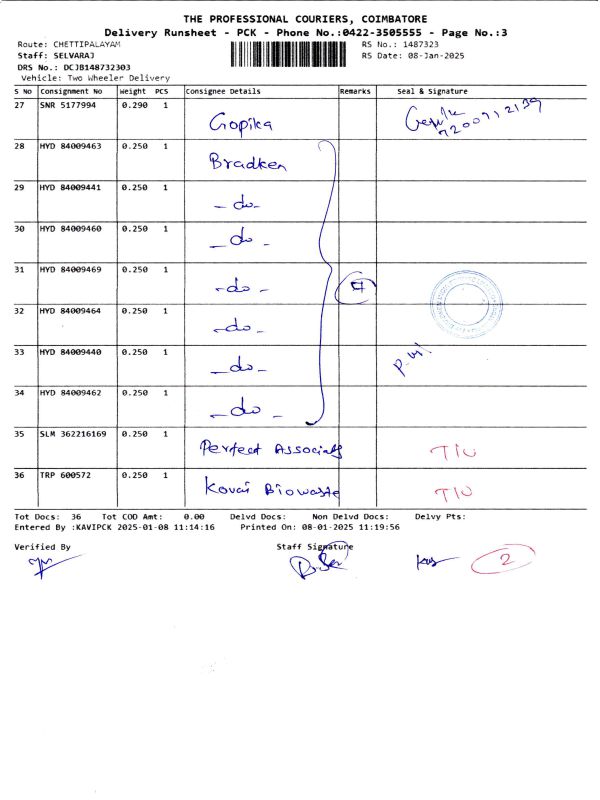 THE PROFESSIONAL COURIERS, COIMBATORE
Delivery Runsheet - PCK - Phone No.:0422-3505555 - Page No.:3
Route: CHETTIPALAYAM RS No.: 1487323
Staff: SELVARAJ RS Date: 08-Jan-2025
DRS No.: DCJB148732303
Vehicle: Two Wheeler Delivery
S No Consignment No Weight PCS Consignee Details Remarks Seal & Signature
27 SNR 5177994 0.290 1 Gopika Gopika
7200712139
28 HYD 84009463 0.250 1 Bradken
29 HYD 84009441 0.250 1 -do-
30 HYD 84009460 0.250 1 -do-
31 HYD 84009469 0.250 1 -do-
32 HYD 84009464 0.250 1 -do-
33 HYD 84009440 0.250 1 -do-
34 HYD 84009462 0.250 1 -do-
35 SLM 362216169 0.250 1 Perfect Associats TIU
36 TRP 600572 0.250 1 Kovai Biowaste TIU
Tot Docs: 36 Tot COD Amt: 0.00 Delvd Docs: Non Delvd Docs: Delvy Pts:
Entered By :KAVIPCK 2025-01-08 11:14:16 Printed On: 08-01-2025 11:19:56
Verified By Staff Signature
2